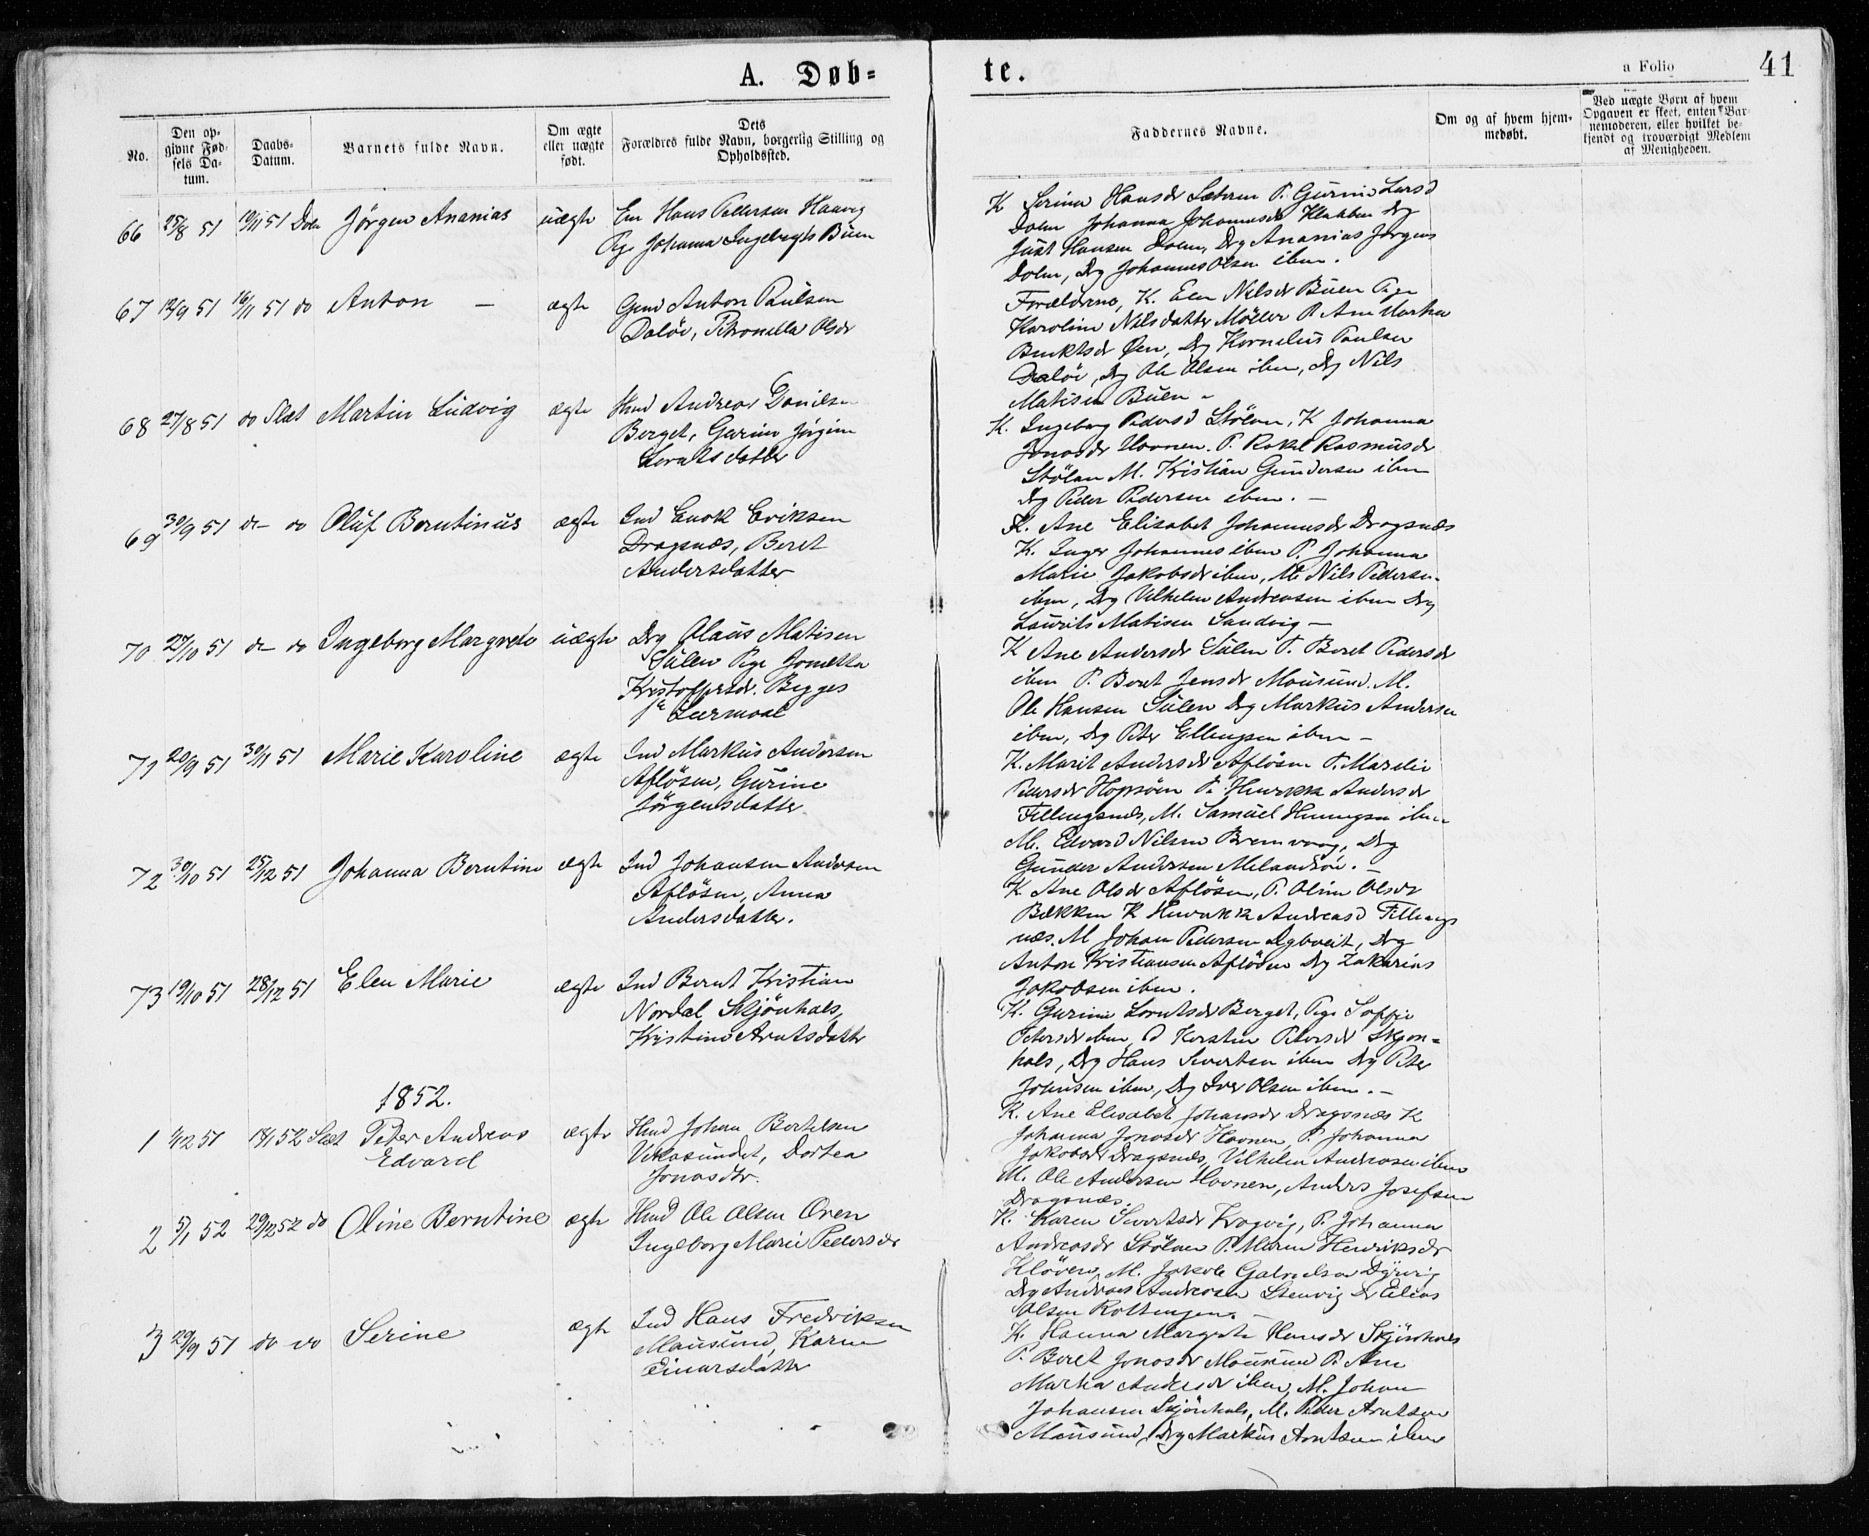 A. Døb=
te.
a Folio
41
No.
Den op-
givne Fød-
sels Da-
tum.
Daabs-
Datum.
Barnets fulde Navn.
Om ægte
eller uægte
født.
Dets
Forældres fulde Navn, borgerlig Stilling og
Opholdssted.
Faddernes Navne.
Om og af hvem hjem-
medøbt.
Ved uægte Børn af hvem
Opgaven er skeet, enten Bar-
nemoderen, eller hvilket be-
kjendt og troværdigt Medlem
af Menigheden.
66 25/8 51 Jörgen Ananias uægte Em Hans Pettersen
Pige Johanna Buen
K Serina Hansdr P. Gurine Larsd
Dolm Johanna Johannesdr Klakken Drg
Just Hansen Dolm, Drg Ananias Jörgens
Dolm, Drg Johannes Olsen ibm.
67 12/9 51 16/11 51 do Anton — ægte Gmd Anton Paulsen
Dolöe, Petronella Olsdr
Forældrene, K. Elen Nilsdr Buen Pige
Karoline Nilsdatter Möller P. Ane Martha
Öen, Drg Kornelius Paulsen
Daløe, Drg Ole Olsen ibm, Drg Nils
Matisen Buen –
68 27/8 51 do Slet Martin Ludvig ægte Hmd Andreas Danielsen
Berget, Gurine
Lorntsdatter
K. Ingeborg Pedersd Stölan, K Johanna
Jonasdr Hovnen. P. Rakel Rasmusdr
Stölan M. Kristian Gundersen ibm
Drg Peder Pedersen ibm. –
69 30/9 51 do do Oluf Berntinus ægte Ind Enok Eriksen
Dragsnæs, Beret
Andersdatter
K. Ane Elisabet Johannesdr Dragsnæs
K. Inger Johannes ibm P. Johanna
Marie Jakobsdr ibm, M. Nils Pedersen
ibm, Drg Vilhelm Andreasen ibm Drg
Laurits Matisen Sandvig –
70 27/10 51 do do Ingeborg Margrete uægte Drg Olaus Matisen
Sulen Pige Jonetta
Kristoffersdr. Begges
K Ane Andersdr Sulen P. Beret Pedersdr
ibm P. Beret Jensdr Mausund. M.
Ole Hansen Sulen Drg Markus Andersen
ibm, Drg Peter Ellingsen ibm –
71 20/9 51 30/11 51 Marie Karoline ægte Ind Markus Andersen
Aflösen, Gurine
Jörgensdatter
K. Marit Andersdr Aflösen P. Marelie
Pedersdr Hopsöen P. Henrikke Andersdr
Fillingsnæs, M. Samuel Henningsen ibm
M. Edvard Nilsen Bremvaag, Drg
Gunder Andersen Melandsöe. –
72 30/10 51 25/12 51 Johanna Berntine ægte Ind Johansen Andersen
Aflösen, Anna
Andersdatter.
K Ane Olsdr Aflösen, P. Oline Olsdr
Bækken K Henrikke Andreasd Fillings
næs. M Johan Pedersen Drg
Anton Kristiansen Aflösen Drg Zakarias
Jakobsen ibm.
73 19/10 51 28/12 51 Elen Marie ægte Ind Bernt Kristian
Nordal Skjönhals,
Kristine Arntsdatter
K. Gurine Lorntsdr Berget, Pige Soffie
Petersdr ibm, Kerstin Petersdr Skjøn=
hals, Drg Hans Sivertsen ibm Drg Peter
Johnsen ibm, Drg Iver Olsen ibm. –
1852.
1 1/12 51 18/1 52 Slet Peter Andreas
Edvard
ægte Hmd Johan Bertelsen
Vikasundet, Dortea
Jonasdtr.
K. Ane Elisabet Johansdr Dragsnæs K
Johanna Jonasdr Hovnen P. Johanna
Jakobsdr Dragsnæs, Vilhelm Andreasen ibm
M. Ole Andersen Hovnen, Anders Josefsen
Dragsnæs.
2 5/1 52 29/2 52 do Oline Berntine ægte Hmd Ole Olsen Oren
Ingeborg Marie Pedersdr
K. Karen Sivertsdr Krogvig, P. Johanna
Andreasdr Stölan P. Maren Henriksdr
Klöven, M. Jakob Gabrielsen Dyrvig
Drg Andreas Andreasen Stenvig Dr Elias
Olsen –
3 29/9 51 do do Serine ægte Ind Hans Fredriksen
Mausund, Karen
Einarsdatter
K. Hanna Margrete Hansdr Skjönhals
P. Beret Jonasdr Mausund P. Ane
Marta Andersdr ibm, M. Johan
Johansen Skjönhals, M. Peder Arntsen
Mausund, Drg Markus Arntsen ibm